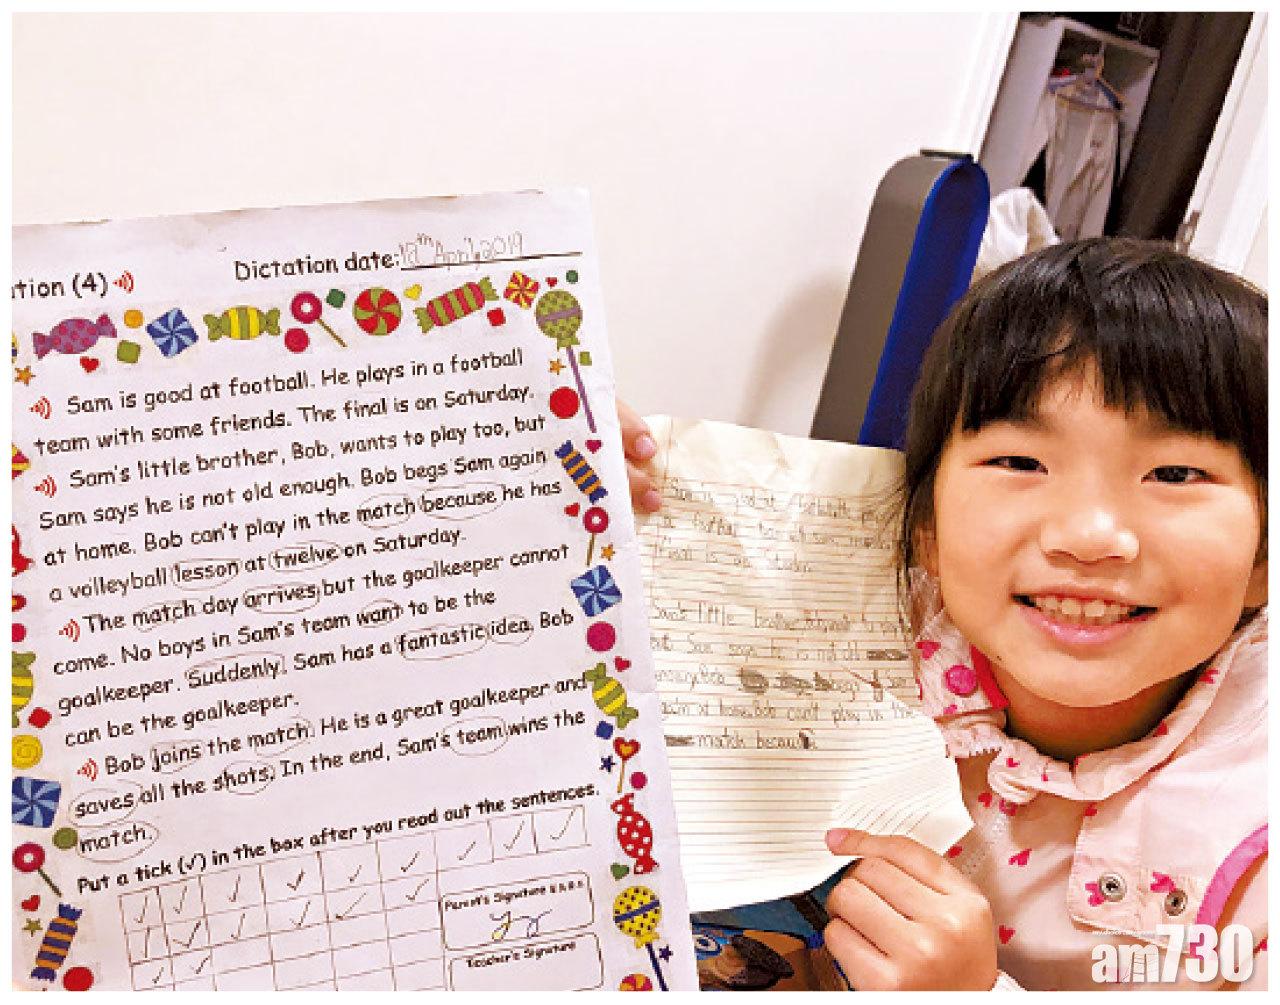 tion (4)
Dictation date: 18th April, 2019
Sam is good at football. He plays in a football
team with some friends. The final is on Saturday.
Sam's little brother, Bob, wants to play too, but
Sam says he is not old enough. Bob begs Sam again
at home. Bob can't play in the match because he has
a volleyball lesson at twelve on Saturday.
The match day arrives but the goalkeeper cannot
come. No boys in Sam's team want to be the
goalkeeper. Suddenly, Sam has a fantastic idea. Bob
can be the goalkeeper.
Bob joins the match. He is a great goalkeeper and
saves all the shots. In the end, Sam's team wins the
match.
Put a tick (✓) in the box after you read out the sentences.
Parent's Signature
Teacher's Signature
Sam is
a football team
is on
Sam's little brother
but Sam says he is not old
Bob begs Sam
again at home. Bob can't play in the
match
am730